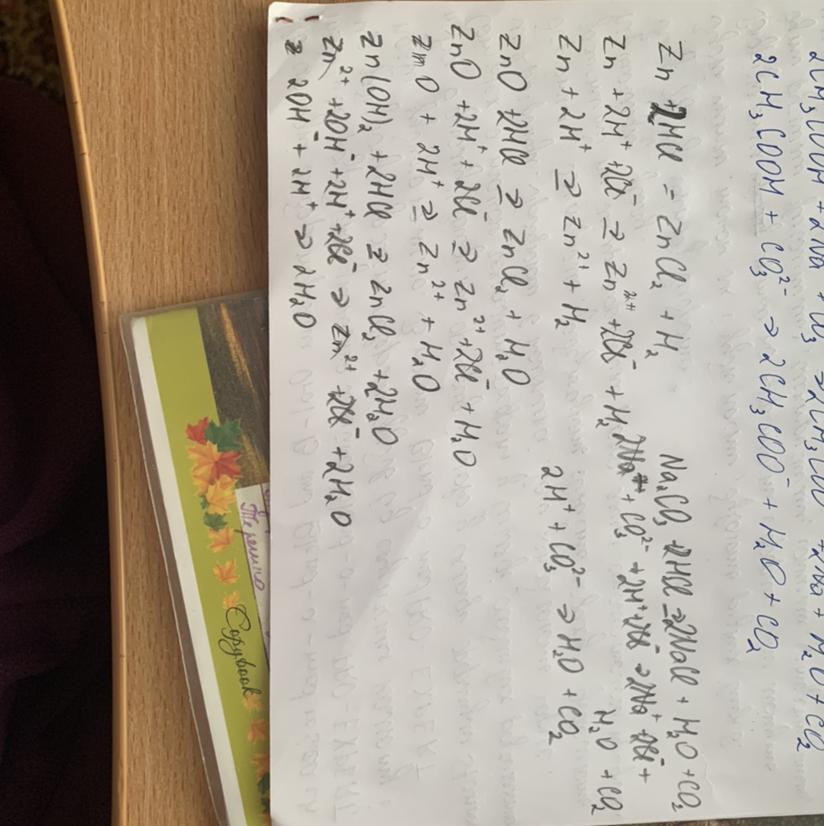 2CH₃COOH + 2Na⁺ + CO₃ → 2CH₃COO + 2Na + H₂O + CO₂
2CH₃COOH + CO₃²⁻ → 2CH₃COO⁻ + H₂O + CO₂
Zn + 2HCl = ZnCl₂ + H₂
Na₂CO₃ + 2HCl → 2NaCl + H₂O + CO₂
Zn + 2H⁺ + 2Cl⁻ → Zn²⁺ + 2Cl⁻ + H₂
2Na⁺ + CO₃²⁻ + 2H⁺ + 2Cl⁻ → 2Na⁺ + 2Cl⁻ +
H₂O + CO₂
Zn + 2H⁺ → Zn²⁺ + H₂
2H⁺ + CO₃²⁻ → H₂O + CO₂
ZnO + 2HCl → ZnCl₂ + H₂O
ZnO + 2H⁺ + 2Cl⁻ → Zn²⁺ + 2Cl⁻ + H₂O
ZnO + 2H⁺ → Zn²⁺ + H₂O
Zn(OH)₂ + 2HCl → ZnCl₂ + 2H₂O
Zn²⁺ + 2OH⁻ + 2H⁺ + 2Cl⁻ → Zn²⁺ + 2Cl⁻ + 2H₂O
2OH⁻ + 2H⁺ → 2H₂O
Copybook